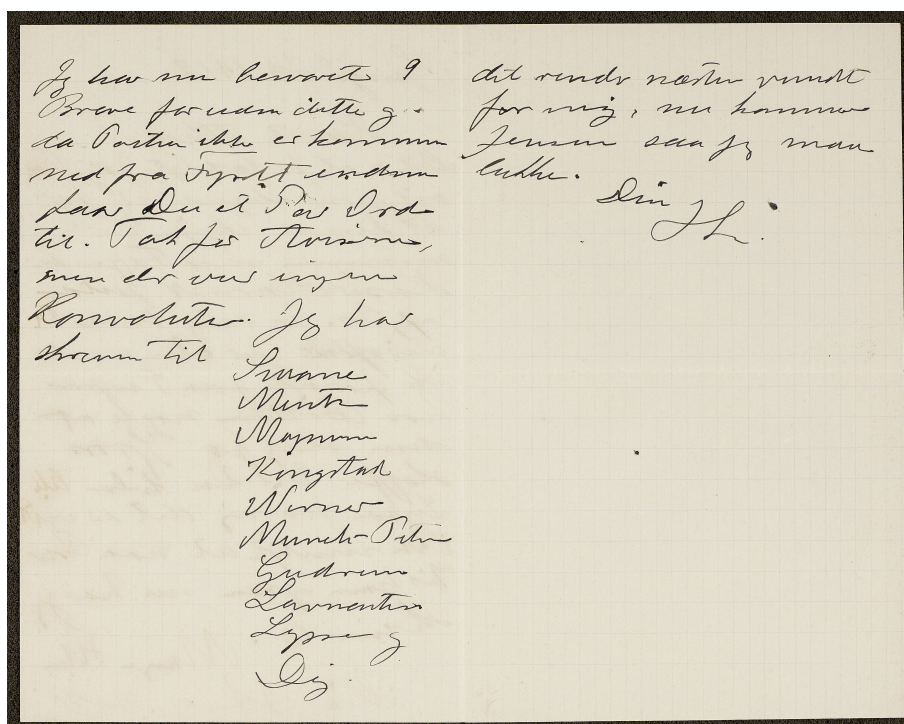 Jeg har nu besvaret 9
Breve foruden dette og
da Posten ikke er kommen
ned fra Fyrsti endnu
faar Du et Par Ord
til. Tak for Aviserne,
men der var ingen
Konvolutter. Jeg har
skreven til
Swane
Mentz
Magnum
Kongstad
Werner
Munch-Petersen
Gudrun
Laurentse
Lysse og
Dig.
det render næsten rundt
for mig, nu kommer
Jensen saa jeg maa
lukke.
Din
JL.